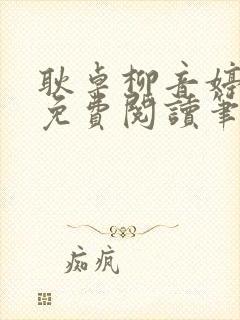 耿卓柳音婷
免費閱讀筆
痴疯